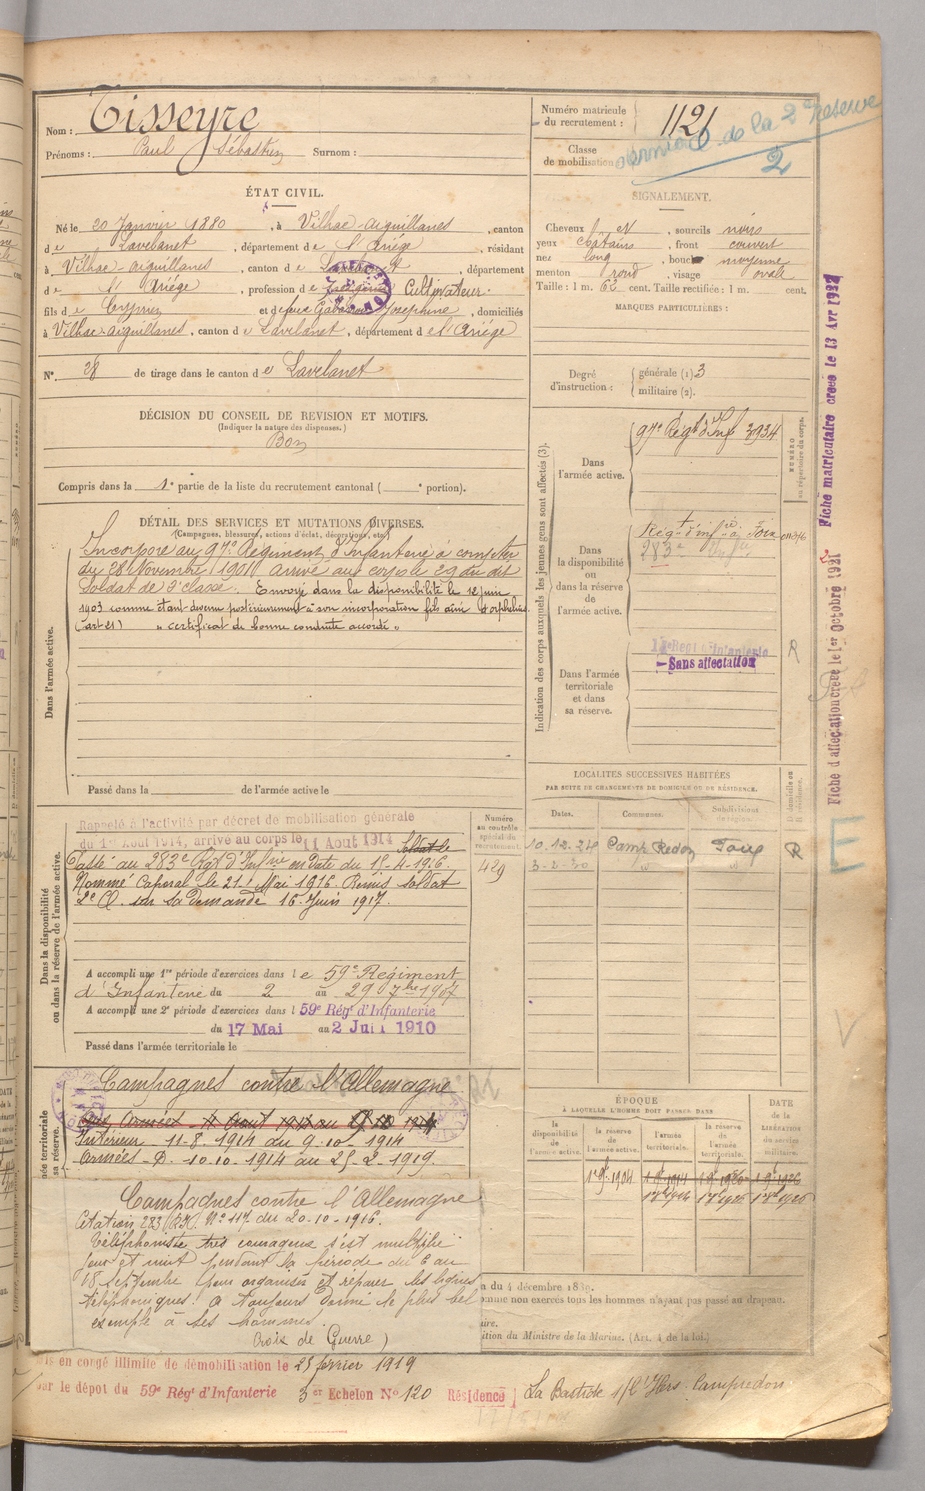 Nom : Tisseyre
Prénoms : Paul Sébastien Surnom :
Numéro matricule du recrutement : 1121
Classe de mobilisation
dernière de la 2e Réserve
2
ÉTAT CIVIL.
Né le 20 Janvier 1880, à Vilhac-Aiguillanes, canton
de Lavelanet, département de l'Ariège, résidant
à Vilhac-Aiguillanes, canton de Lavelanet, département
de l'Ariège, profession de Cultivateur.
fils de Cyprien et de feue Josephine, domiciliés
à Vilhac-aiguillanes, canton de Lavelanet, département de l'Ariège
N° 28 de tirage dans le canton de Lavelanet
SIGNALEMENT.
Cheveux N, sourcils noirs
yeux châtains, front couvert
nez long, bouche moyenne
menton rond, visage ovale
Taille : 1 m. 62 cent. Taille rectifiée : 1 m. cent.
MARQUES PARTICULIÈRES :
Degré d'instruction : générale (1) 3
militaire (2).
DÉCISION DU CONSEIL DE REVISION ET MOTIFS.
(Indiquer la nature des dispenses.)
Bon
Compris dans la 1e partie de la liste du recrutement cantonal ( e portion).
DÉTAIL DES SERVICES ET MUTATIONS DIVERSES.
(Campagnes, blessures, actions d'éclat, décorations, etc.)
Dans l'armée active.
Incorporé au 97e Régiment d'Infanterie à compter
du 28 Novembre 1901 arrivé au corps le 29 du dit
Soldat de 2e classe. Envoyé dans la disponibilité le 12 juin
1903 comme étant devenu postérieurement à son incorporation fils ainé d'orphelins.
(art 21) " certificat de bonne conduite accordé "
Passé dans la de l'armée active le
Indication des corps auxquels les jeunes gens sont affectés (3).
Dans l'armée active.
97e Régt d'Inf 3934
NUMÉRO au répertoire du corps.
Dans la disponibilité ou dans la réserve de l'armée active.
Régt d'infie à Foix
283e
Dans l'armée territoriale et dans sa réserve.
Régt d'Infanterie
Sans affectation
R
Fiche matriculaire créée le 13 Avr 1932
Fiche d'affectation créée le 1er Octobre 1921
E
LOCALITES SUCCESSIVES HABITÉES
PAR SUITE DE CHANGEMENTS DE DOMICILE OU DE RÉSIDENCE.
Dates. Communes. Subdivisions de région. Domicile ou résidence.
10.12.24 Camp Redon R
3-2-30 " "
Dans la disponibilité ou dans la réserve de l'armée active.
Rappelé à l'activité par décret de mobilisation générale
du 1er Août 1914, arrivé au corps le 11 Aout 1914 Soldat de
Passé au 283e Rgt d'Infrie en date du 15-4-1916.
Nommé Caporal le 21 Mai 1916. Remis soldat
2e Cl. sur sa demande 16 Juin 1917.
Numéro au contrôle spécial du recrutement.
429
A accompli une 1re période d'exercices dans le 59e Régiment
d'Infanterie du 2 au 29 7bre 1907
A accompli une 2e période d'exercices dans l 59e Régt d'Infanterie
du 17 Mai au 2 Juin 1910
Passé dans l'armée territoriale le
Campagnes contre l'Allemagne
Intérieur 11-8-1914 au 9-10-1914
Armées -D- 10-10-1914 au 25-2-1919.
Campagnes contre l'Allemagne
Citation 283 RI N° 117 du 20-10-1916.
Téléphoniste très courageux s'est multiplié
jour et nuit pendant la période du 6 au
18 Septembre pour organiser et réparer les lignes
téléphoniques. A toujours donné le plus bel
exemple à ses hommes.
Croix de Guerre)
ÉPOQUE
À LAQUELLE L'HOMME DOIT PASSER DANS
la disponibilité de l'armée active. la réserve de l'armée active. l'armée territoriale. la réserve de l'armée territoriale. DATE de la LIBÉRATION du service militaire.
1er 9. 1904
n du 4 décembre 1889.
omme non exercés tous les hommes n'ayant pas passé au drapeau.
aire.
ition du Ministre de la Marine. (Art. 4 de la loi.)
is en congé illimité de démobilisation le 25 février 1919
par le dépot du 59e Régt d'Infanterie 3er Echelon N° 120 Résidence La Bastide s/l'Hers Campredon